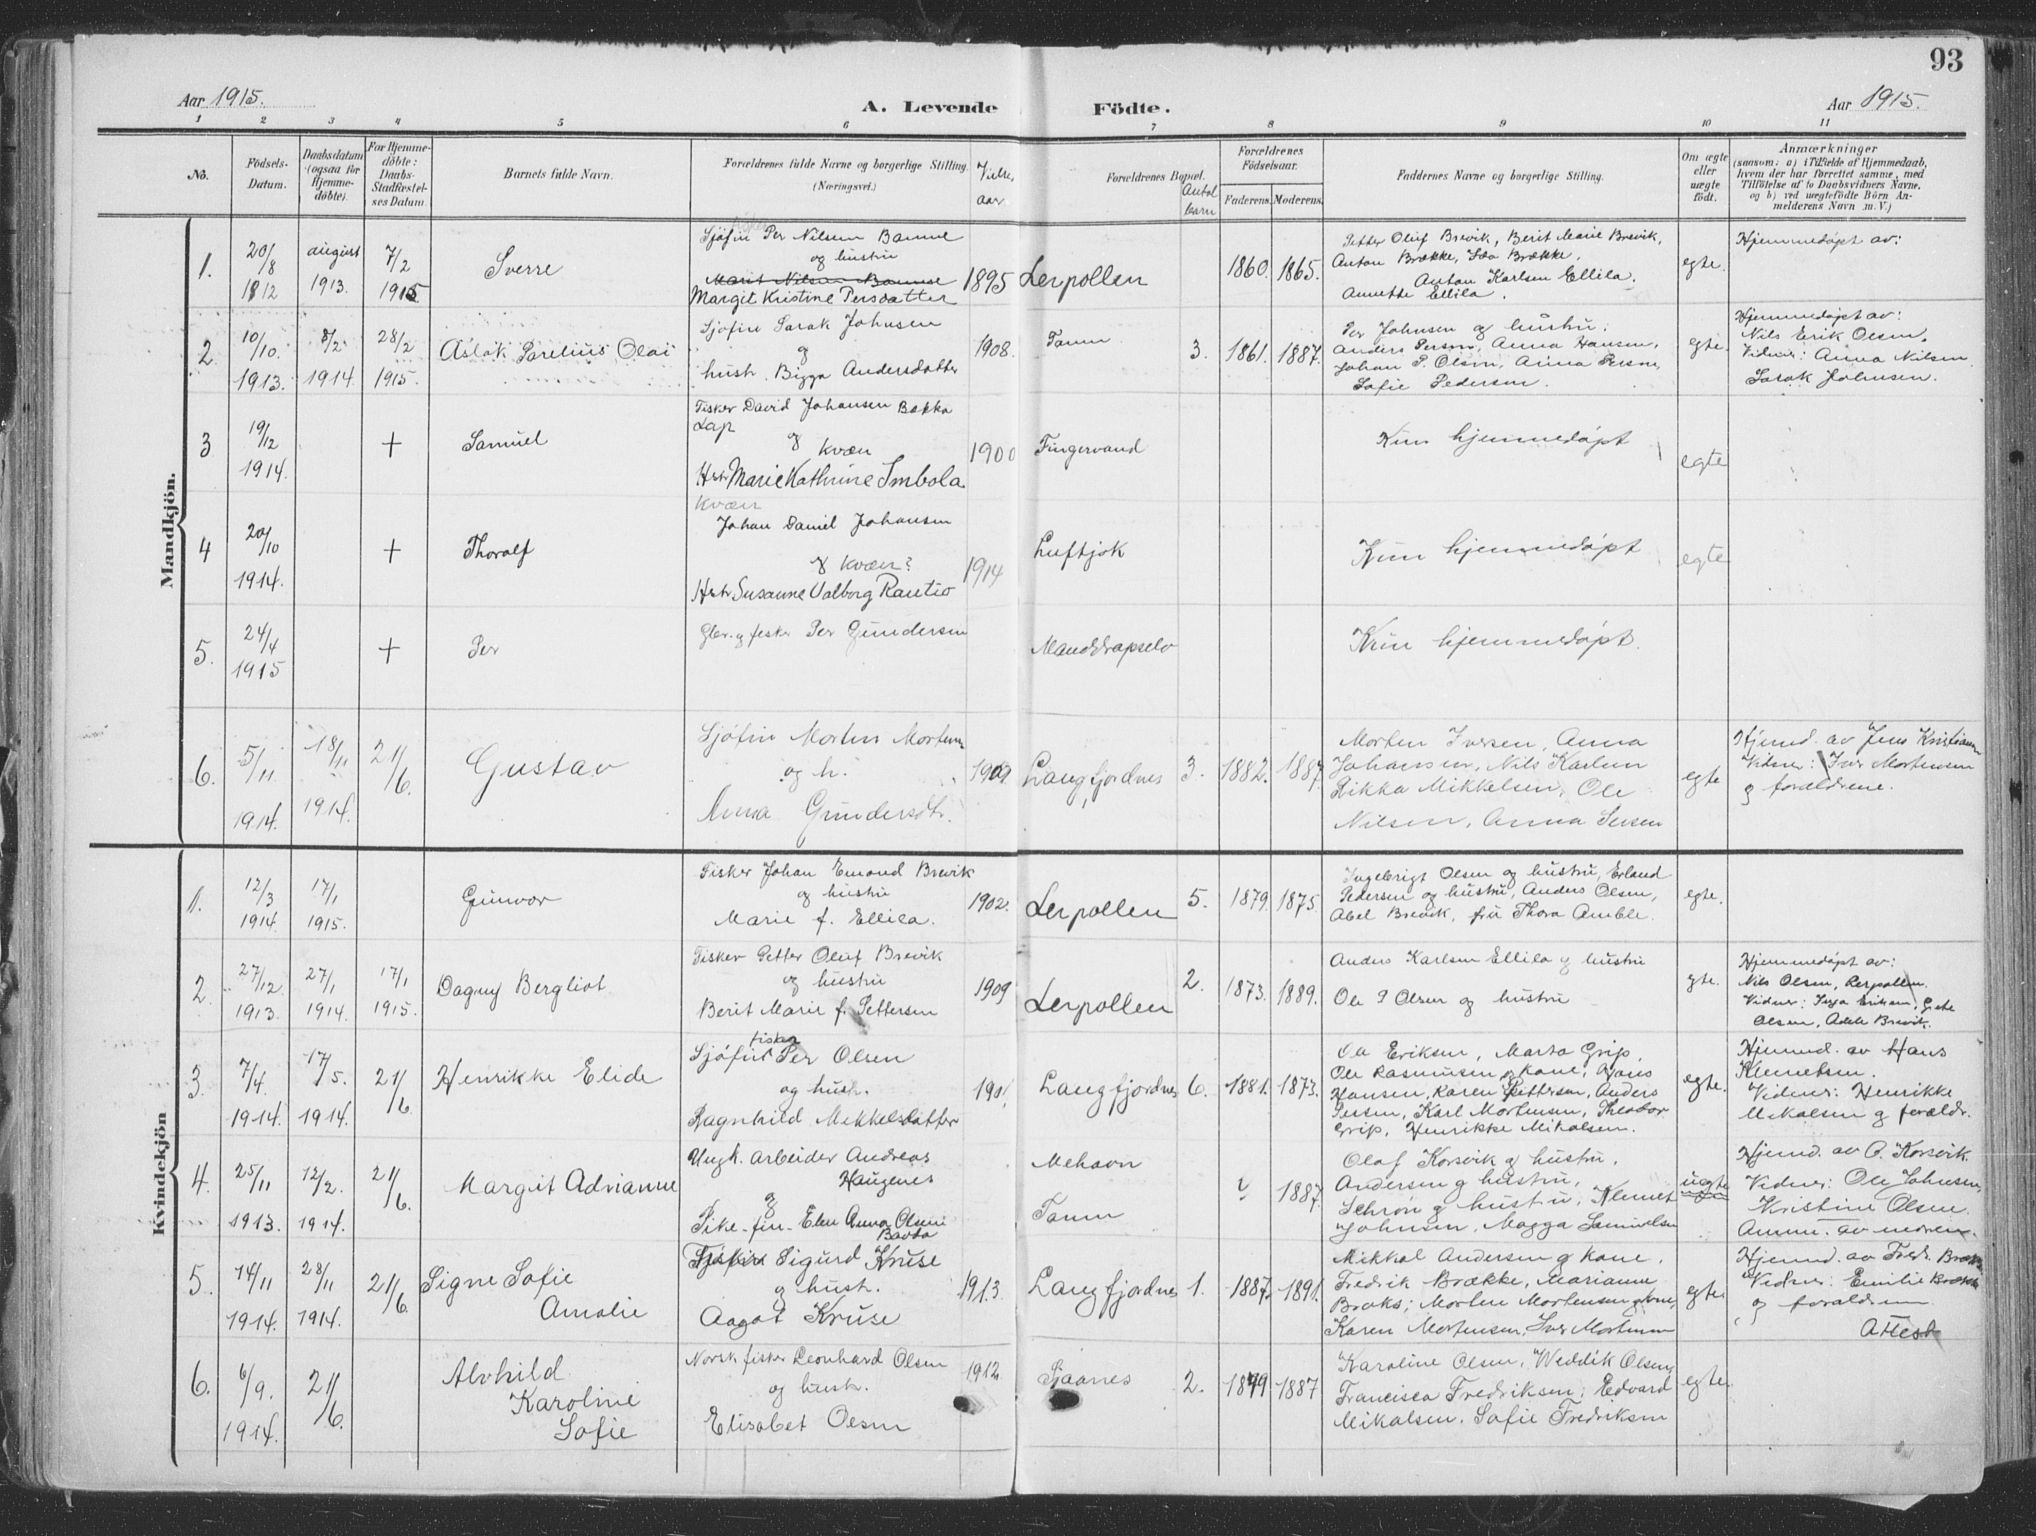 93
Aar 1915.
A. Levende Födte.
Aar 1915.
1 2 3 4 5 6 7 8 9 10 11
No.
Födsels-Datum.
Daabsdatum (ogsaa for Hjemme-döbte).
For Hjemme-döbte: Daabs-Stadfæstel-ses Datum.
Barnets fulde Navn.
Forældrenes fulde Navne og borgerlige Stilling. (Næringsvei.)
Vielses aar.
Forældrenes Bopæl.
Antal barn
Forældrenes Födselsaar.
Faderens. Moderens.
Faddernes Navne og borgerlige Stilling.
Om ægte eller uægte födt.
Anmærkninger
(saasom: a) i Tilfælde af Hjemmedaab,
hvem der har forrettet samme, med
Tilföielse af to Daabsvidners Navne,
og b) ved uægtefödte Börn An-
melderens Navn m. V.)
Mandkjön.
1. 20/8 1812 august 1913. 7/2 1915 Sverre
Sjøfin Per Nilsen Banne
og hustru
Marit Nilsen Banne
Margit Kristine Persdatter
1895 Lerpollen 1860. 1865.
Petter Oluf Brevik, Berit Marie Brevik,
Anton Brække, Ida Brække.
Anton Karlsen Ellila.
Annette Ellila.
egte.
Hjemmedøpt av:
2. 10/10. 1913. 8/2 1914. 28/2 1915. Aslak Parelius Olai
Sjøfin Sarak Johnsen
og
hust. Bigga Andersdatter
1908. Tanen 3. 1861. 1887.
Per Johnsen og hustru.
Anders Persen, Anna Hansen,
Johan P. Olsen, Anna Persen,
Sofie Pedersen.
egte.
Hjemmedøpt av:
Nils Erik Olsen,
Vidner: Anna Nilsen
Sarak Johnsen.
3 19/12 1914. + Samuel
Fisker David Johansen Bakka
Lap
og
kvæn
Hstr Marie Kathrine Imbola
1900 Fingervand
Kun hjemmedøpt
egte
4 20/10 1914. + Thoralf
kvæn
Johan Daniel Johansen
og kvæn?
Hstr Susanne Valborg Rautio
1914 Luftjok
Kun hjemmedøpt
egte
5. 24/4 1915 + Per
Gbr. og fisker Per Gundersen
Manddrapselv
Kun hjemmedøpt.
6. 5/11. 1914. 18/11 1914. 21/6. Gustav
Sjøfin Morten Mortensen
og h.
Anna Gundersdtr.
1909 Langfjordnes 3. 1882. 1887.
Morten Iversen, Anna
Johansen, Nils Karlsen
Rikka Mikkelsen, Ole
Nilsen, Anna Iversen
egte
Hjemd. av Jens Kristiansen
Vidner: Iver Mortensen
og forældrene.
Kvindekjön
1. 12/3 1914. 17/1 1915. Gunvor
Fisker Johan Emond Brevik
og hustru
Marie f. Ellila.
1902. Lerpollen 5. 1879. 1875.
Ingebrigt Olsen og hustru, Erland
Pedersen og hustru, Anders Olsen,
Abel Brevik, fru Thora Amble.
egte.
2. 27/12. 1913. 27/1 1914. 17/1 1915. Dagny Bergliot
Fisker Petter Oluf Brevik
og hustru
Berit Marie f. Pettersen
1909 Lerpollen 2. 1873. 1889.
Anders Karlsen Ellila og hustru
Ole P Olsen og hustru
egte.
Hjemmedøpt av:
Nils Olsen, Lerpollen.
Vidner: Inga Eriksen, Grete
Olsen, Adele Brevik.
3. 7/4. 1914. 17/5. 1914. 21/6 Henrikke Elide
fisker
Sjøfin Per Olsen
og hust.
Ragnhild Mikkelsdatter
1901. Langfjordnes 6. 1881. 1873.
Ole Eriksen, Marta Grip,
Ole Rasmussen og kone, Hans
Hansen, Karen Pettersen, Anders
Persen, Karl Mortensen, Theodor
Grip, Henrikke Mikalsen.
egte.
Hjemmd. av Hans
Klemetsen.
Vidner: Henrikke
Mikalsen og forældr.
4. 25/11 1913. 12/2. 1914. 21/6. Margit Adrianne
Ungk. arbeider Andreas
Haugenes
og
Pike - fin - Elen Anna Olsen
Bavta
Mehavn
Tanen
? 1887.
Olaf Korsvik og hustru.
Andersen og hustru,
Schrøn og hustru, Klemet
Johnsen, Magga Samuelsen
uegte
Hjemd. av O. Korsvik.
Vidner: Ole Johnsen,
Kristine Olsen.
Anm. av moren.
5. 14/11 1914. 28/11 1914. 21/6. Signe Sofie
Amalie
Fisker Sigurd Kruse
og hust.
Aagot Kruse
1913. Langfjordnes 1. 1887. 1891.
Mikkal Andersen og kone.
Fredrik Brække, Marianne
Broks; Morten Mortensen og kone,
Karen Mortensen, Iver Mortensen
egte.
Hjemd. av Fredr. Brække
Vidner: Emilie Brække
og forældrene
Attest
6. 6/9. 1914. 21/6. Alvhild
Karoline
Sofie
Norsk fisker Leonhard Olsen
og hust.
Elisabet Olsen
1912. Sjaanes 2. 1879 1887
Karoline Olsen, Weddik Olsen,
Francisca Fredriksen; Edvard
Mikalsen. Sofie Fredriksen
egte.